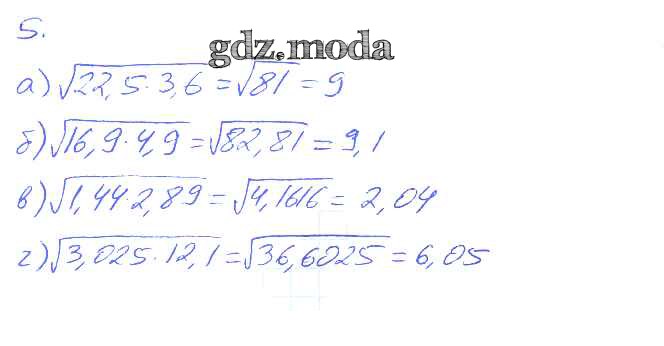 5.
gdz.moda
а) √22,5·3,6 = √81 = 9
б) √16,9·4,9 = √82,81 = 9,1
в) √1,44·2,89 = √4,1616 = 2,04
г) √3,025·12,1 = √36,6025 = 6,05